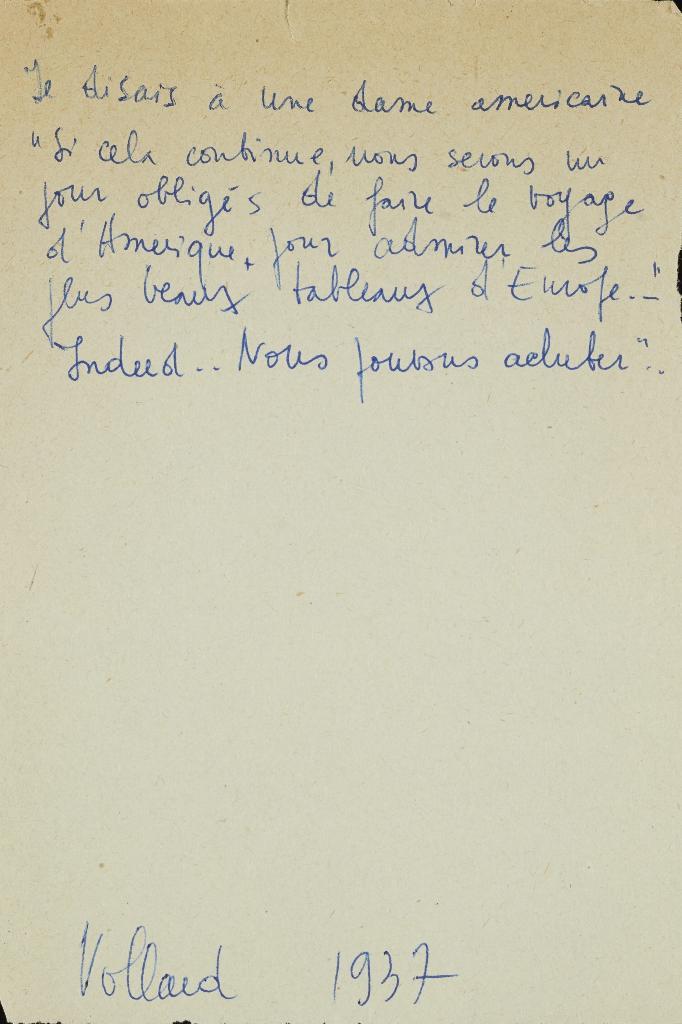 Je disais à une dame americaine
"Si cela continue, nous serons un
jour obligés de faire le voyage
d'Amerique, pour admirer les
plus beaux tableaux d'Europe.–"
"Indeed.. Nous pouvons acheter"..
Vollard 1937